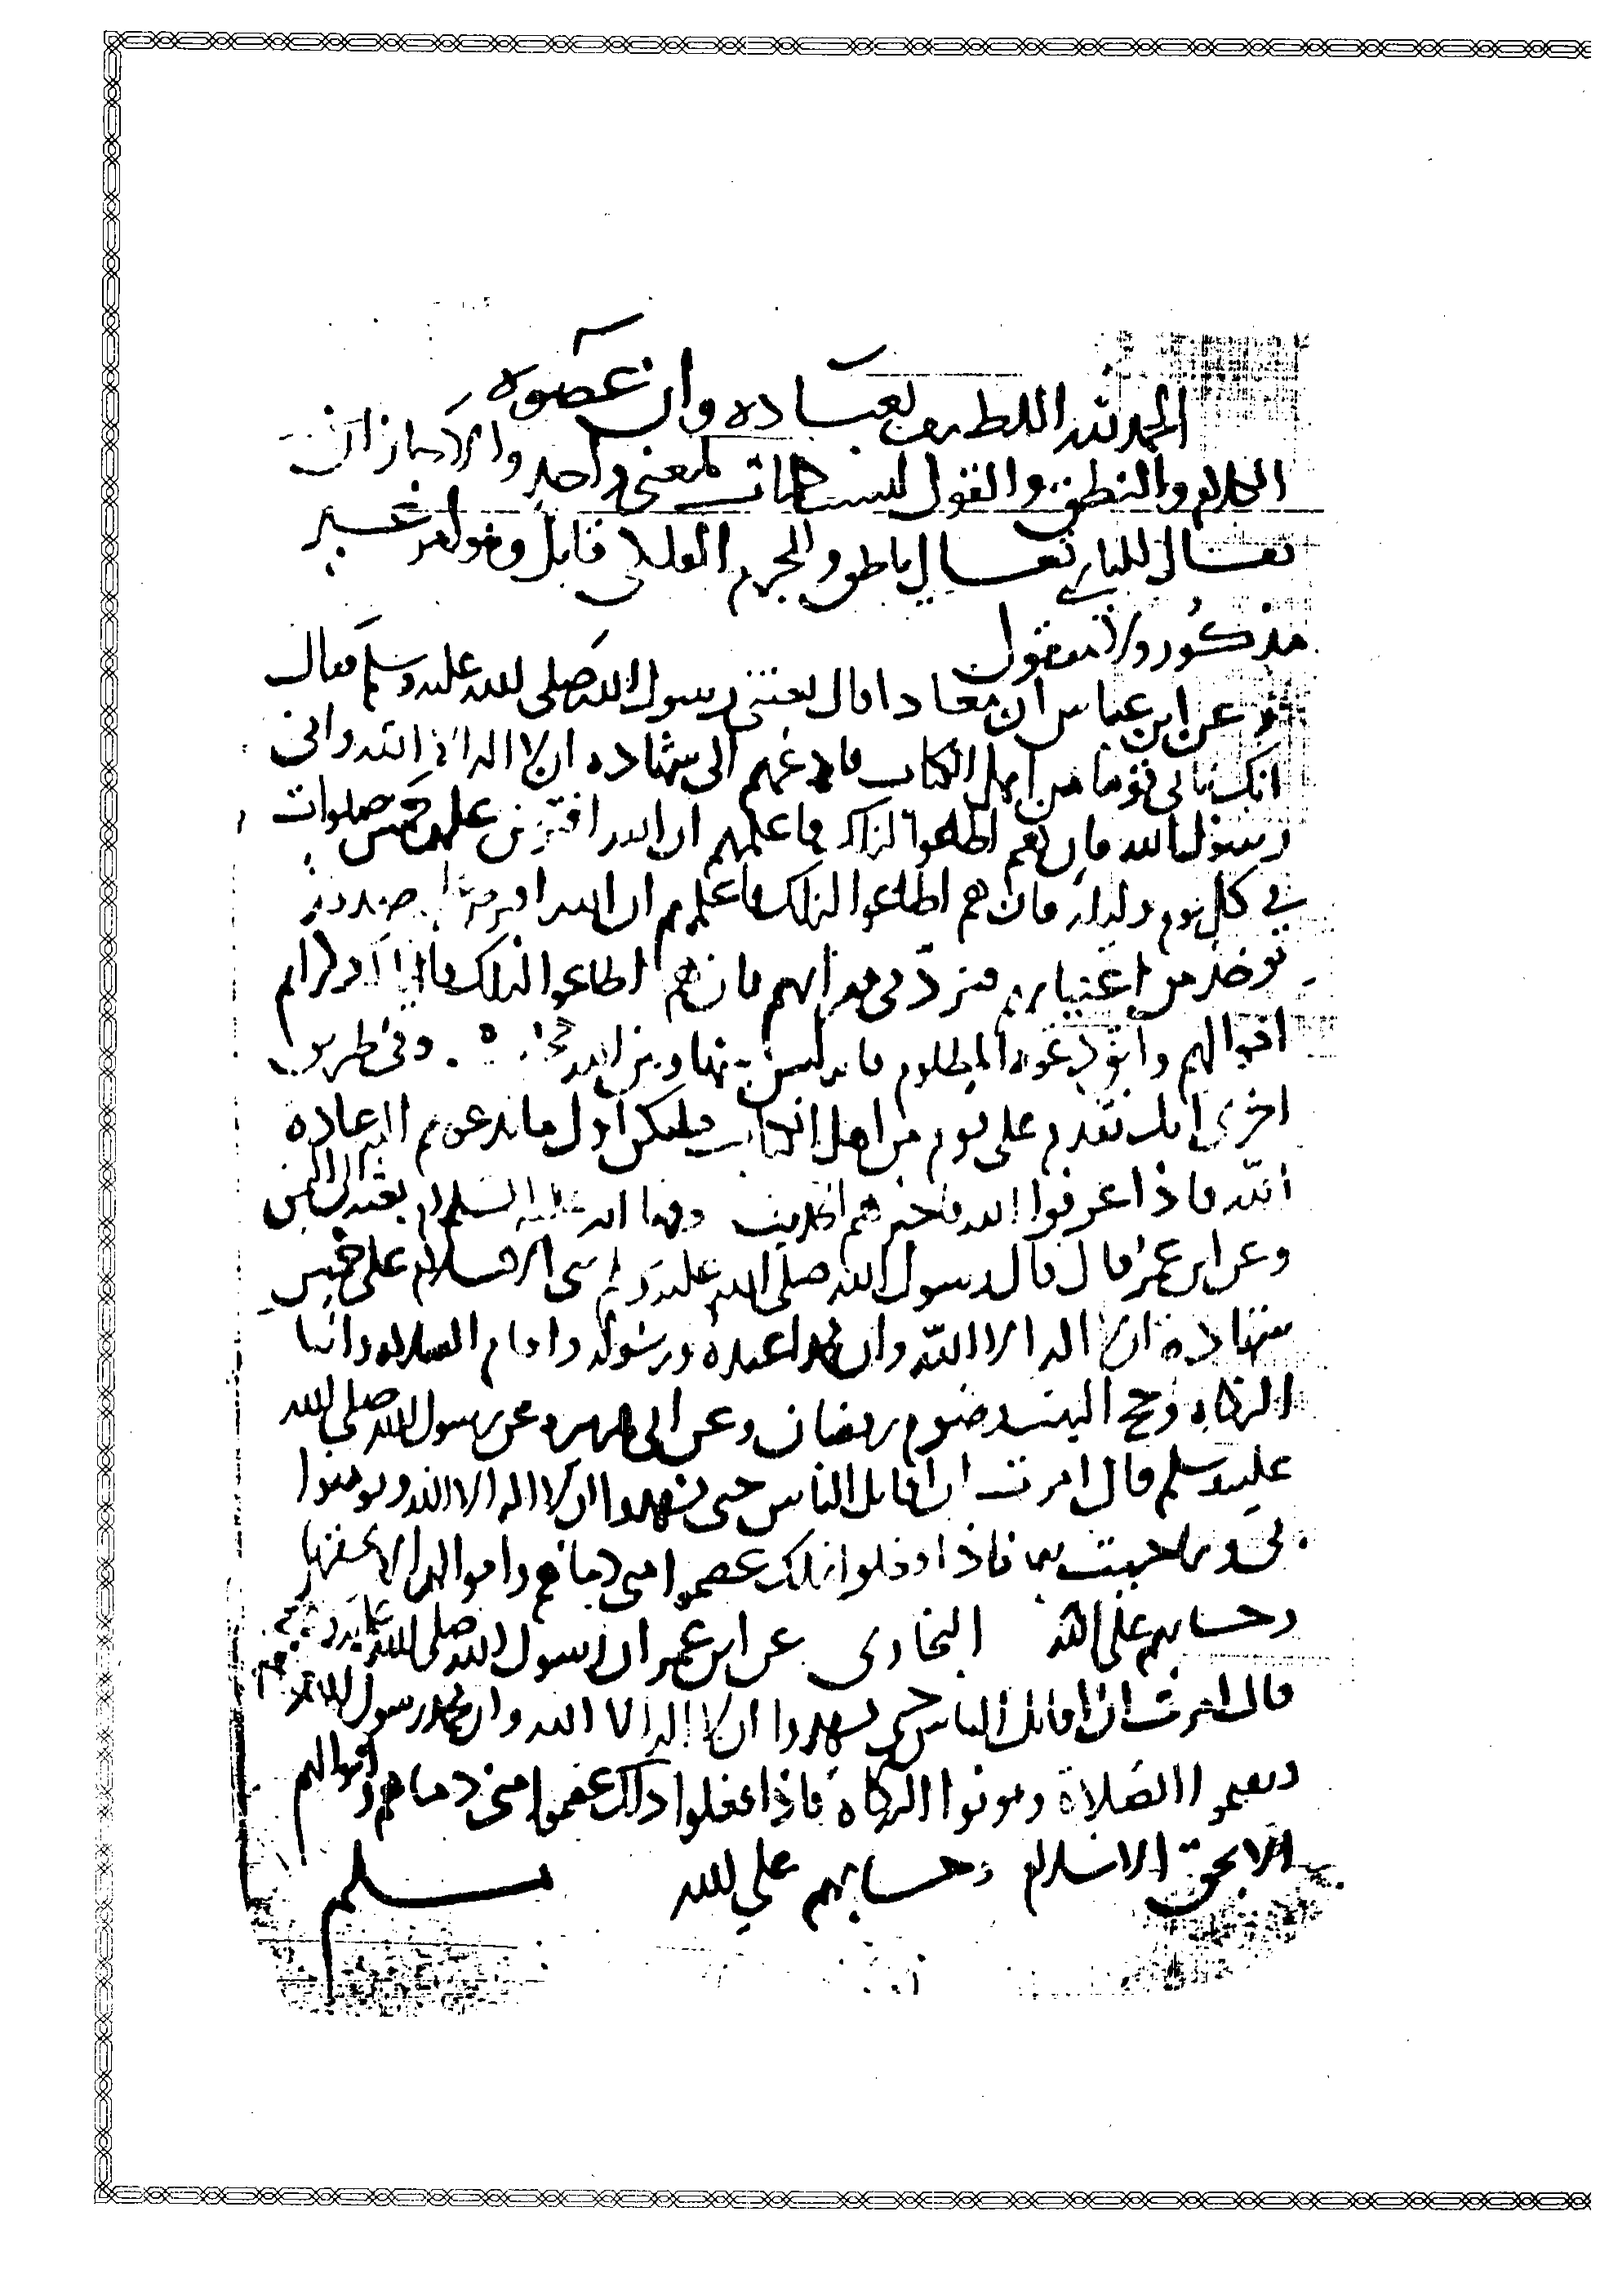 الحمد لله اللطيف بعباده وان عصوه
الكلام والنطق والقول ليست لمعنى واحد والا لجاز ان
تعالى للباري تعالى ناطق قايل وقولهم غير
مذكور ولا معقول
وعن ابن عباس ان معاذا قال بعثني رسول الله صلى الله عليه وسلم فقال
انك تاتي قوما من اهل الكتاب فادعهم الى شهادة ان لا اله الا الله واني
رسول الله فان هم اطاعوا لذلك فاعلمهم ان الله افترض عليهم خمس صلوات
في كل يوم وليلة فان هم اطاعوا لذلك فاعلمهم ان الله افترض صدقة
توخذ من اغنيايهم فترد في فقرايهم فان هم اطاعوا لذلك فاياك وكرايم
اموالهم واتق دعوة المظلوم فانه ليس بينها وبين الله حجاب . وفي طريق
اخرى انك تقدم على قوم من اهل الكتاب فليكن اول ما تدعوهم اليه عبادة
الله فاذا عرفوا الله فاخبرهم الحديث وفيها انه عليه السلام بعثه الى اليمن
وعن ابن عمر قال قال رسول الله صلى الله عليه وسلم بني الاسلام على خمس
شهادة ان لا اله الا الله وان محمدا عبده ورسوله واقام الصلاة وايتا
الزكاة وحج البيت وصوم رمضان وعن ابي هريرة عن رسول الله صلى الله
عليه وسلم قال امرت ان اقاتل الناس حتى يشهدوا ان لا اله الا الله ويومنوا
بي وبما جيت به فاذا فعلوا ذلك عصموا مني دماهم واموالهم الا بحقها
وحسابهم على الله البخاري عن ابن عمر ان رسول الله صلى الله عليه وسلم
قال امرت ان اقاتل الناس حتى يشهدوا ان لا اله الا الله وان محمد رسول الله
ويقيموا الصلاة ويوتوا الزكاة فاذا فعلوا ذلك عصموا مني دماهم واموالهم
الا بحق الاسلام وحسابهم على الله مسلم